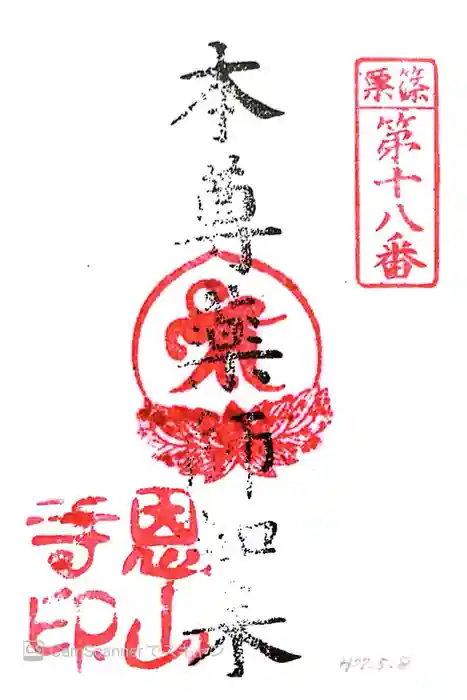 篠栗
第十八番
本尊薬師如来
恩山
寺印
H27.5.8
CS CamScanner でスキャン